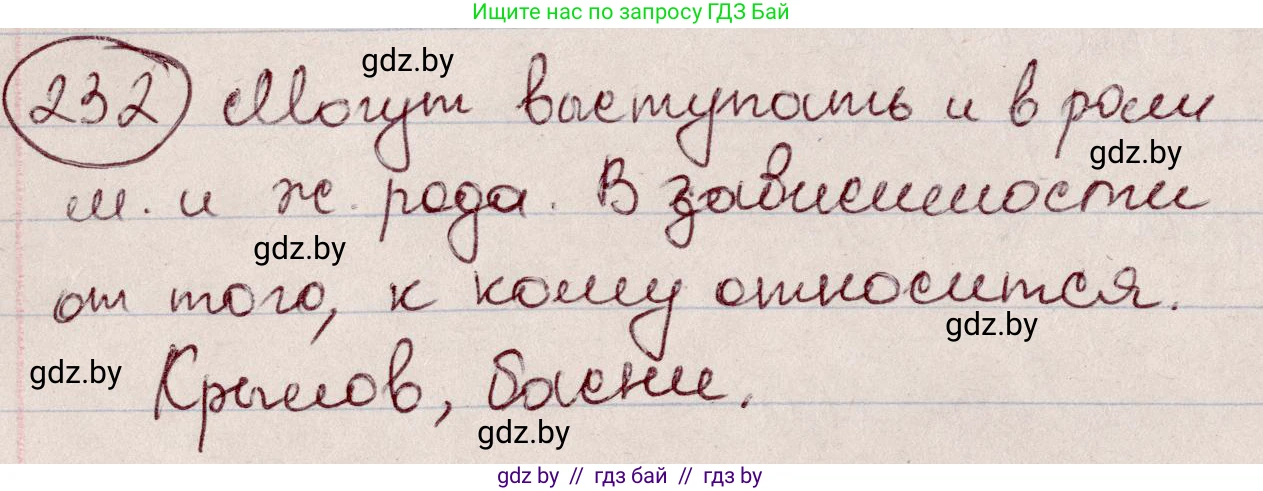 Ищите нас по запросу ГДЗ Бай
gdz.by
232 Могут выступать и в роли
gdz.by
м. и ж. рода. В зависимости
gdz.by
от того, к кому относится.
gdz.by
gdz.by
Крылов, басни.
gdz.by
gdz.by // гдз бай // гдз by